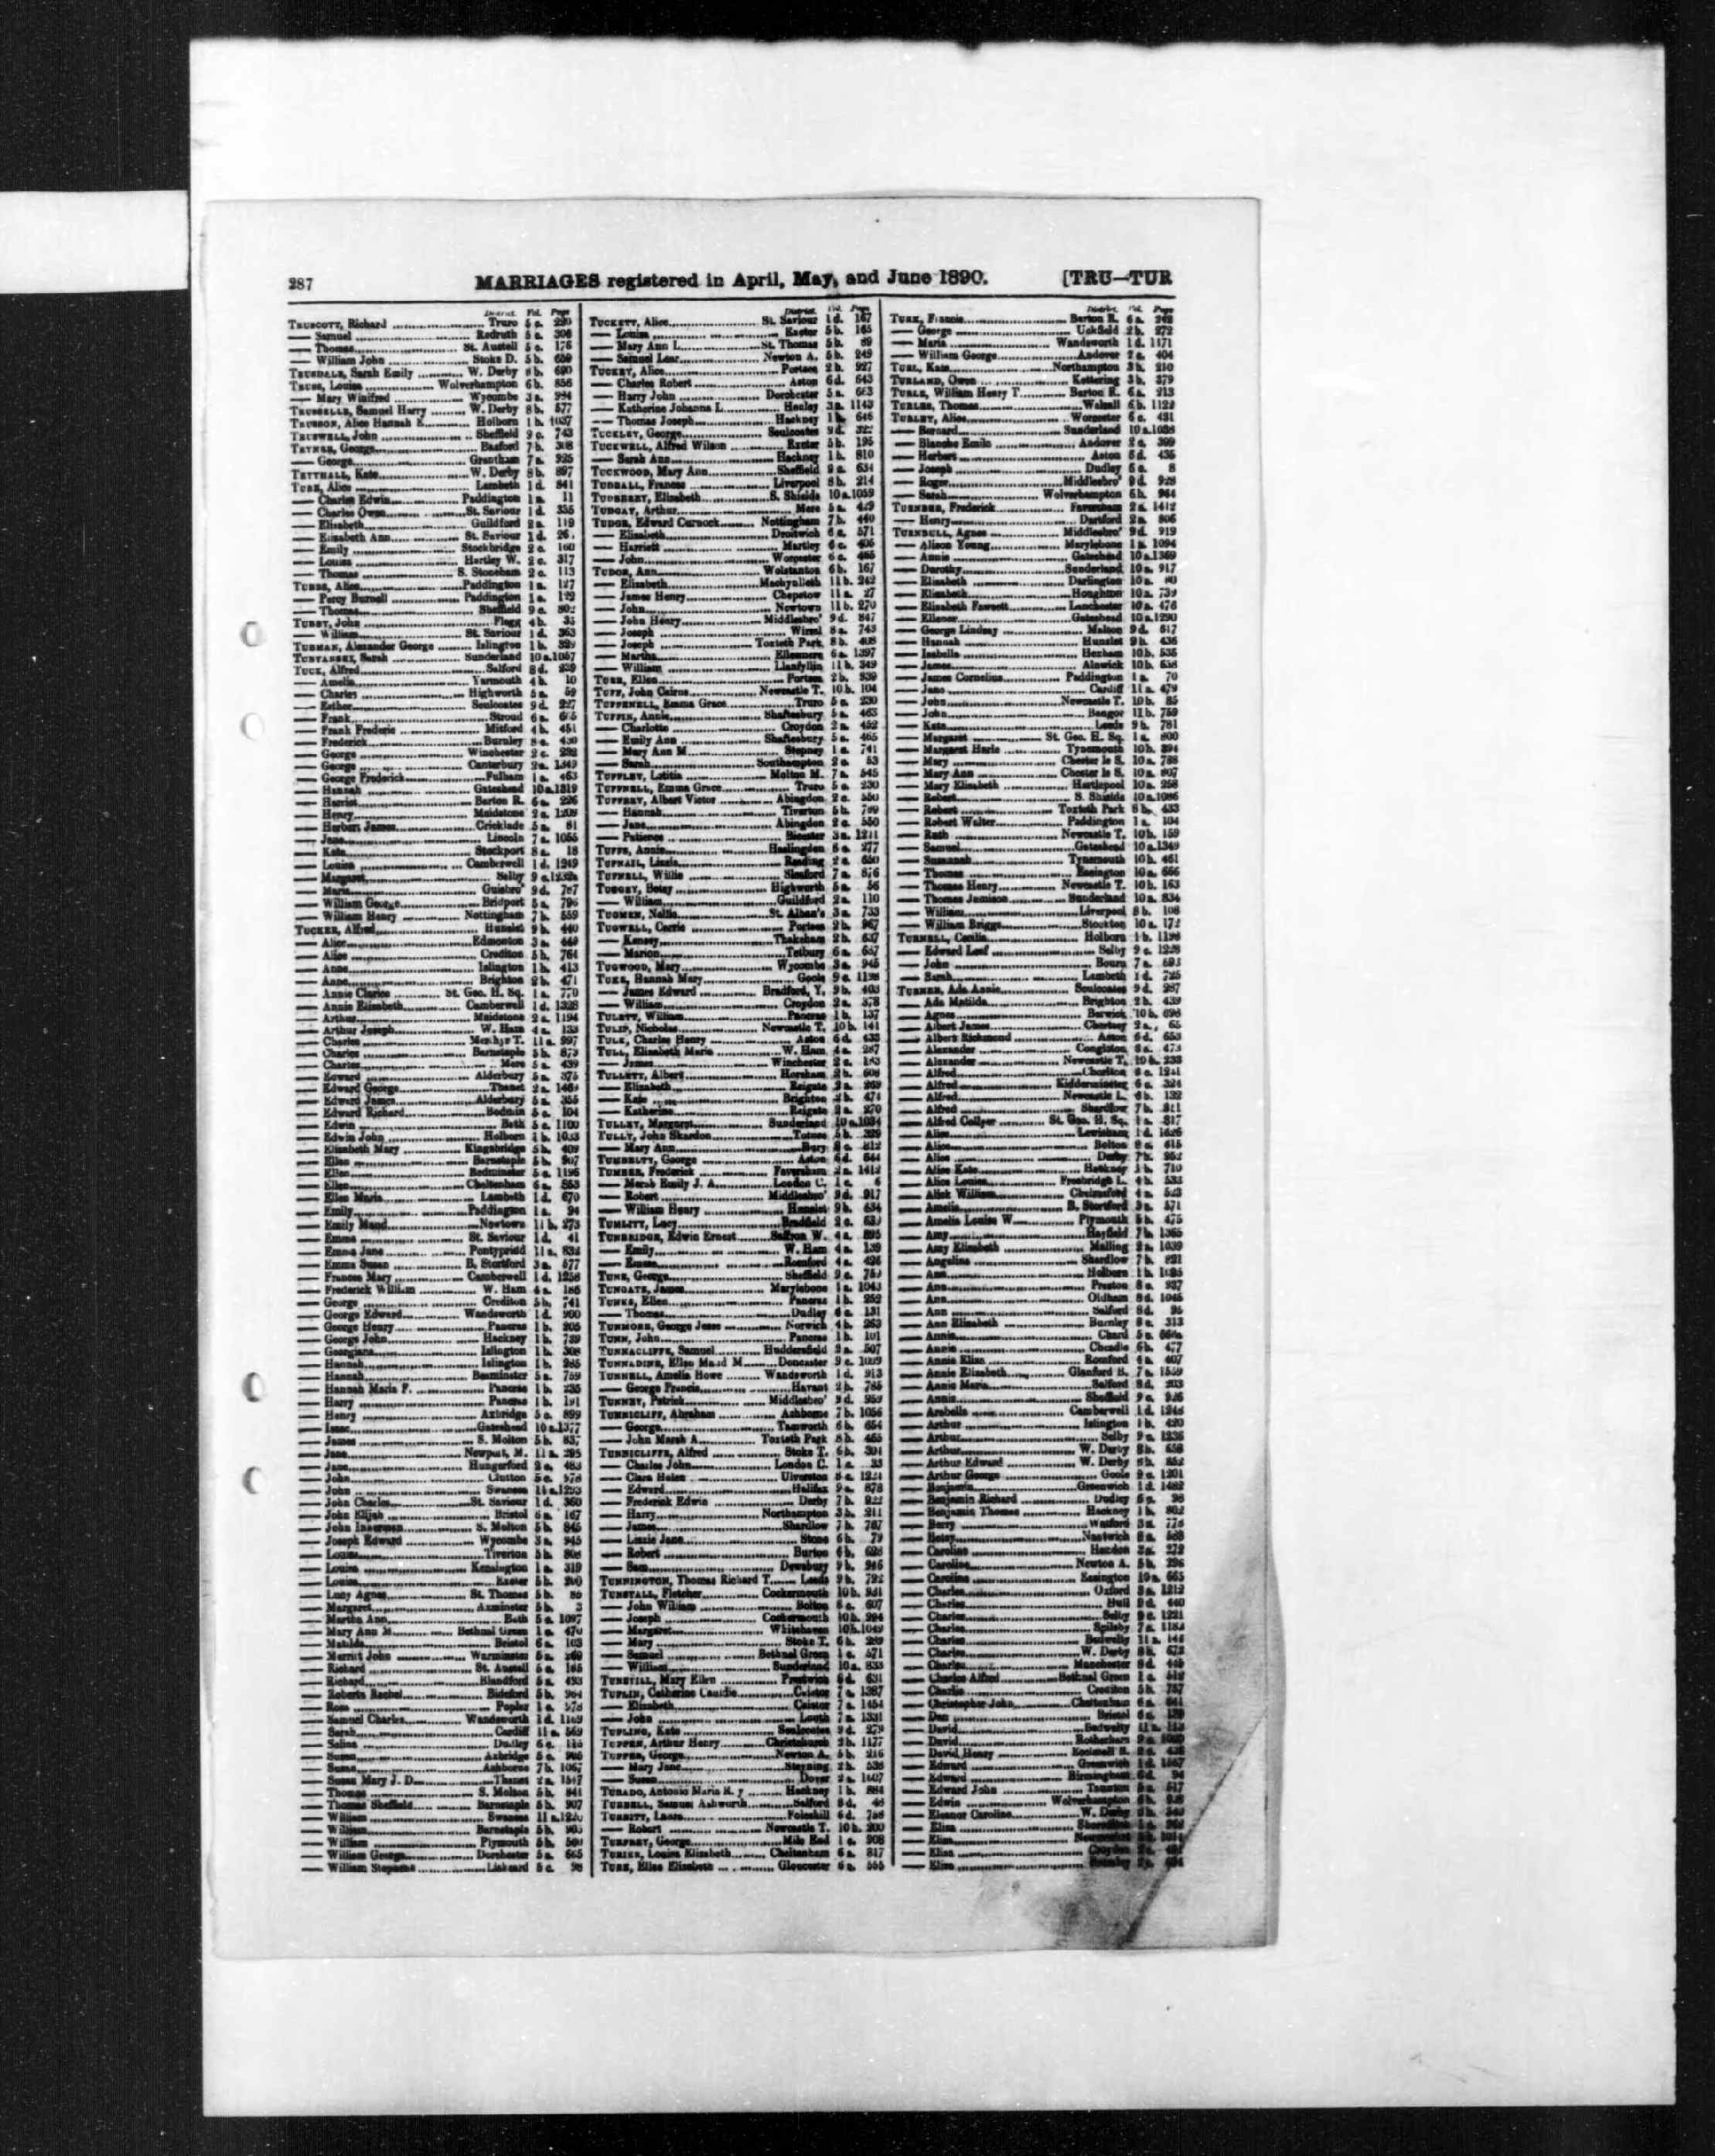 287 MARRIAGES registered in April, May, and June 1890. [TRU—TUR
District. Vol. Page
TRUSCOTT, Richard ........ Truro 5 c.
— Samuel ........ Redruth 5 c. 306
— Thomas ........ St. Austell 5 c. 176
— William John ........ Stoke D. 5 b. 659
TRUSDALE, Sarah Emily ........ W. Derby 8 b. 690
TRUSS, Louisa ........ Wolverhampton 6 b. 856
— Mary Winifred ........ Wycombe 3 a. 994
TRUSSELLE, Samuel Harry ........ W. Derby 8 b. 577
TRUSSON, Alice Hannah E. ........ Holborn 1 b. 1037
TRUSWELL, John ........ Sheffield 9 c. 743
George ........ Basford 7 b. 308
— George ........ Grantham 7 a. 925
Kate ........ W. Derby 8 b. 897
TUBB, Alice ........ Lambeth 1 d. 841
— Charles Edwin ........ Paddington 1 a. 11
— Charles Owen ........ St. Saviour 1 d. 335
— Elizabeth ........ Guildford 2 a. 119
— Elizabeth Ann ........ St. Saviour 1 d.
— Emily ........ Stockbridge 2 c. 160
— Louisa ........ Hartley W. 2 c. 317
— Thomas ........ S. Stoneham 2 c. 113
TUBBS, Alice ........ Paddington 1 a. 127
— Percy Burnell ........ Paddington 1 a. 129
— Thomas ........ Sheffield 9 c.
TUBBY, John ........ Flegg 4 b. 35
— William ........ St. Saviour 1 d. 363
TUBMAN, Alexander George ........ Islington 1 b. 329
Sarah ........ Sunderland 10 a. 1057
TUCK, Alfred ........ Salford 8 d. 239
— Amelia ........ Yarmouth 4 b. 10
— Charles ........ Highworth 5 a. 59
— Esther ........ Sculcoates 9 d. 227
— Frank ........ Stroud 6 a.
— Frank Frederic ........ Mitford 4 b. 451
— Frederick ........ Burnley 8 e. 430
— George ........ Winchester 2 c.
— George ........ Canterbury 2 a. 1349
— George Frederick ........ Fulham 1 a. 463
— Hannah ........ Gateshead 10 a. 1319
— Harriet ........ Barton R. 6 a. 226
— Henry ........ Maidstone 2 a. 1209
— Herbert James ........ Cricklade 5 a. 81
— Jane ........ Lincoln 7 a. 1055
— Kate ........ Stockport 8 a. 18
— Louisa ........ Camberwell 1 d. 1249
— Margaret ........ Selby 9 c.
— Maria ........ Guisbro' 9 d. 787
— William George ........ Bridport 5 a. 796
— William Henry ........ Nottingham 7 b. 559
TUCKER, Alfred ........ Hunslet 9 b. 440
— Alice ........ Edmonton 3 a. 449
— Alice ........ Crediton 5 b. 764
— Anne ........ Islington 1 b. 413
— Anne ........ Brighton 2 b. 471
— Annie Clarice ........ St. Geo. H. Sq. 1 a. 770
— Annie Elizabeth ........ Camberwell 1 d. 1328
— Arthur ........ Maidstone 2 a. 1194
— Arthur Joseph ........ W. Ham 4 a. 133
— Charles ........ Merthyr T. 11 a. 997
— Charles ........ Barnstaple 5 b. 873
— Charles ........ Mere 5 a. 439
— Edward ........ Alderbury 5 a. 375
— Edward George ........ Thanet 2 a.
— Edward James ........ Alderbury 5 a. 355
— Edward Richard ........ Bodmin 5 c. 104
— Edwin ........ Bath 5 c. 1100
— Edwin John ........ Holborn 1 b. 1033
— Elizabeth Mary ........ Kingsbridge 5 b. 409
— Ellen ........ Barnstaple 5 b. 907
— Ellen ........ Bedminster 5 c. 1196
— Ellen ........ Cheltenham 6 a. 853
— Ellen Maria ........ Lambeth 1 d. 670
— Emily ........ Paddington 1 a. 94
— Emily Maud ........ Newtown 11 b. 273
— Emma ........ St. Saviour 1 d. 41
— Emma Jane ........ Pontypridd 11 a. 832
— Emma Susan ........ B. Stortford 3 a. 577
— Frances Mary ........ Camberwell 1 d. 1258
— Frederick William ........ W. Ham 4 a. 186
— George ........ Crediton 5 b. 741
— George Edward ........ Wandsworth 1 d. 900
— George Henry ........ Pancras 1 b. 205
— George John ........ Hackney 1 b. 739
— Georgiana ........ Islington 1 b. 308
— Hannah ........ Islington 1 b. 285
— Hannah ........ Beaminster 5 a. 759
— Hannah Maria F. ........ Pancras 1 b. 235
— Harry ........ Pancras 1 b. 191
— Henry ........ Axbridge 5 c. 899
— Isaac ........ Gateshead 10 a. 1377
— James ........ S. Molton 5 b. 837
— Jane ........ Newport, M. 11 a. 295
— Jane ........ Hungerford 2 c. 483
— John ........ Clutton 5 c. 978
— John ........ Swansea 11 a. 1293
— John Charles ........ St. Saviour 1 d. 360
— John Elijah ........ Bristol 6 a. 167
— John ........ S. Molton 5 b. 845
— Joseph Edward ........ Wycombe 3 a. 945
— Louisa ........ Tiverton 5 b. 808
— Louisa ........ Kensington 1 a. 319
— Louisa ........ Exeter 5 b. 200
— Lucy Agnes ........ St. Thomas 5 b. 85
— Margaret ........ Axminster 5 b. 3
— Martha Ann ........ Bath 5 c. 1097
— Mary Ann M. ........ Bethnal Green 1 c. 470
— Matilda ........ Bristol 6 a. 103
— Merritt John ........ Warminster 5 a. 269
— Richard ........ St. Austell 5 c. 165
— Richard ........ Blandford 5 a. 493
— Roberta Rachel ........ Bideford 5 b. 964
— Rosa ........ Poplar 1 c. 978
— Samuel Charles ........ Wandsworth 1 d. 1109
— Sarah ........ Cardiff 11 a. 569
— Selina ........ Dudley 6 c. 115
— Susan ........ Axbridge 5 c. 905
— Susan ........ Ashborne 7 b. 1067
— Susan Mary J. D. ........ Thanet 2 a. 1547
— Thomas ........ S. Molton 5 b. 841
— Thomas Sheffield ........ Barnstaple 5 b. 907
— William ........ Swansea 11 a. 1220
— William ........ Barnstaple 5 b. 905
— William ........ Plymouth 5 b. 500
— William George ........ Dorchester 5 a. 665
— William Stephens ........ Liskeard 5 c. 98
District. Vol. Page
TUCKETT, Alice ........ St. Saviour 1 d. 167
— Louisa ........ Exeter 5 b. 165
— Mary Ann L. ........ St. Thomas 5 b. 89
— Samuel Lear ........ Newton A. 5 b. 249
TUCKEY, Alice ........ Portsea 2 b. 927
— Charles Robert ........ Aston 6 d. 643
— Harry John ........ Dorchester 5 a. 663
— Katherine Johanna L. ........ Henley 3 a. 1143
— Thomas Joseph ........ Hackney 1 b. 646
TUCKLEY, George ........ Sculcoates 9 d. 322
TUCKWELL, Alfred Wilson ........ Exeter 5 b. 195
— Sarah Ann ........ Hackney 1 b. 810
TUCKWOOD, Mary Ann ........ Sheffield 9 c. 634
TUDBALL, Frances ........ Liverpool 8 b. 214
TUDBERRY, Elizabeth ........ S. Shields 10 a. 1059
TUDGAY, Arthur ........ Mere 5 a. 429
TUDOR, Edward Curnock ........ Nottingham 7 b. 440
— Elizabeth ........ Droitwich 6 c. 571
— Harriett ........ Martley 6 c. 405
— John ........ Worcester 6 c. 465
TUDOR, Ann ........ Wolstanton 6 b. 167
— Elizabeth ........ Machynlleth 11 b. 242
— James Henry ........ Chepstow 11 a. 27
— John ........ Newtown 11 b. 270
— John Henry ........ Middlesbro' 9 d. 847
— Joseph ........ Wirral 8 a. 743
— Joseph ........ Toxteth Park 8 b. 408
— Martha ........ Ellesmere 6 a. 1397
— William ........ Llanfyllin 11 b. 349
Ellen ........ Portsea 2 b. 939
TUFF, John Cairns ........ Newcastle T. 10 b. 104
TUFFENELL, Emma Grace ........ Truro 5 c. 230
TUFFIN, Annie ........ Shaftesbury 5 a. 463
— Charlotte ........ Croydon 2 a. 452
— Emily Ann ........ Shaftesbury 5 a. 465
— Mary Ann M. ........ Stepney 1 c. 741
— Sarah ........ Southampton 2 c. 53
TUFFLEY, Letitia ........ Melton M. 7 a. 545
TUFFNELL, Emma Grace ........ Truro 5 c. 230
TUFFREY, Albert Victor ........ Abingdon 2 c. 550
— Hannah ........ Tiverton 5 b. 799
— Jane ........ Abingdon 2 c. 550
— Patience ........ Bicester 3 a. 1211
TUFFS, Annie ........ Haslingden 8 e. 277
TUFNAIL, Lizzie ........ Reading 2 c. 650
TUFNELL, Willie ........ Sleaford 7 a. 876
TUGGEY, Betsy ........ Highworth 5 a. 56
— William ........ Guildford 2 a. 110
TUGMEN, Nellie ........ St. Alban's 3 a. 733
TUGWELL, Carrie ........ Portsea 2 b. 967
— Kensey ........ Thakeham 2 b. 637
— Marion ........ Tetbury 6 a. 657
TUGWOOD, Mary ........ Wycombe 3 a. 945
TUKE, Hannah Mary ........ Goole 9 c. 1198
— James Edward ........ Bradford, Y. 9 b. 403
— William ........ Croydon 2 a. 378
TULETT, William ........ Pancras 1 b. 137
TULIP, Nicholas ........ Newcastle T. 10 b. 141
TULK, Charles Henry ........ Aston 6 d. 433
TULL, Elizabeth Marie ........ W. Ham 4 a. 287
— James ........ Winchester 2 c. 163
TULLETT, Albert ........ Horsham 2 b. 608
— Elizabeth ........ Reigate 2 a. 269
— Kate ........ Brighton 2 b. 474
— Katherine ........ Reigate 2 a. 270
TULLEY, Margaret ........ Sunderland 10 a. 1034
TULLY, John Skardon ........ Totnes 5 b. 329
— Mary Ann ........ Bury 8 c. 812
George ........ Aston 6 d. 644
TUMBER, Frederick ........ Faversham 2 a. 1412
— Merab Emily J. A. ........ London C. 1 c. 6
— Robert ........ Middlesbro' 9 d. 917
— William Henry ........ Hunslet 9 b. 634
TUMLITT, Lucy ........ Bradfield 2 c.
TUNBRIDGE, Edwin Ernest ........ Saffron W. 4 a. 895
— Emily ........ W. Ham 4 a. 139
— Emma ........ Romford 4 a. 426
TUNE, George ........ Sheffield 9 c. 759
TUNGATE, James ........ Marylebone 1 a. 1043
TUNKS, Ellen ........ Pancras 1 b. 252
— Thomas ........ Dudley 6 c. 131
TUNMORE, George Jesse ........ Norwich 4 b. 263
TUNN, John ........ Pancras 1 b. 101
TUNNACLIFFE, Samuel ........ Huddersfield 9 a. 507
TUNNADINE, Ellen Maud M. ........ Doncaster 9 c. 1009
TUNNELL, Amelia Howe ........ Wandsworth 1 d. 913
— George Francis ........ Havant 2 b. 785
TUNNEY, Patrick ........ Middlesbro' 9 d. 959
TUNNICLIFF, Abraham ........ Ashborne 7 b. 1056
— George ........ Tamworth 6 b. 654
— John Marsh A. ........ Toxteth Park 8 b. 465
TUNNICLIFFE, Alfred ........ Stoke T. 6 b. 304
— Charles John ........ London C. 1 c. 33
— Clara Helen ........ Ulverston 8 e. 1221
— Edward ........ Halifax 9 a. 878
— Frederick Edwin ........ Derby 7 b. 922
— Harry ........ Northampton 3 b. 211
— James ........ Shardlow 7 b. 767
— Lizzie Jane ........ Stone 6 b. 79
— Robert ........ Burton 6 b. 628
— Sam ........ Dewsbury 9 b. 946
TUNNINGTON, Thomas Richard T. ........ Leeds 9 b. 792
TUNSTALL, Fletcher ........ Cockermouth 10 b. 931
— John William ........ Bolton 8 c. 607
— Joseph ........ Cockermouth 10 b. 994
— Margaret ........ Whitehaven 10 b. 1049
— Mary ........ Stoke T. 6 b. 269
— Samuel ........ Bethnal Green 1 c. 571
— William ........ Sunderland 10 a. 833
TUNSTILL, Mary Ellen ........ Prestwich 8 d. 631
TUPLIN, Catherine Caudle ........ Caistor 7 a. 1387
— Elizabeth ........ Caistor 7 a. 1454
— John ........ Louth 7 a. 1331
TUPLING, Kate ........ Sculcoates 9 d. 279
TUPPEN, Arthur Henry ........ Christchurch 2 b. 1177
TUPPER, George ........ Newton A. 5 b. 216
— Mary Jane ........ Steyning 2 b. 538
— Susan ........ Dover 2 a. 1607
TURADO, Antonio Maria M. y ........ Hackney 1 b. 884
TURBELL, Samuel Ashworth ........ Salford 8 d. 48
TURBITT, Laura ........ Foleshill 6 d. 788
— Robert ........ Newcastle T. 10 b. 200
TURFREY, George ........ Mile End 1 c. 908
Louisa Elizabeth ........ Cheltenham 6 a. 817
TURK, Ellen Elizabeth ........ Gloucester 6 a. 555
District. Vol. Page
TURK, Fannie ........ Barton R. 6 a. 242
— George ........ Uckfield 2 b. 272
— Maria ........ Wandsworth 1 d. 1171
— William George ........ Andover 2 c. 404
TURL, Kate ........ Northampton 3 b. 210
TURLAND, Owen ........ Kettering 3 b. 379
TURLE, William Henry T. ........ Barton R. 6 a. 213
TURLER, Thomas ........ Walsall 6 b. 1122
TURLEY, Alice ........ Worcester 6 c. 431
— Bernard ........ Sunderland 10 a. 1038
— Blanche Emile ........ Andover 2 c. 399
— Herbert ........ Aston 6 d. 435
— Joseph ........ Dudley 6 c. 8
— Roger ........ Middlesbro' 9 d. 928
— Sarah ........ Wolverhampton 6 b. 944
TURNBER, Frederick ........ Faversham 2 a. 1412
— Henry ........ Dartford 2 a. 806
TURNBULL, Agnes ........ Middlesbro' 9 d. 919
— Alison Young ........ Marylebone 1 a. 1094
— Annie ........ Gateshead 10 a. 1369
— Dorothy ........ Sunderland 10 a. 917
— Elizabeth ........ Darlington 10 a. 80
— Elizabeth ........ Houghton 10 a. 739
— Elizabeth Fawcett ........ Lanchester 10 a. 476
— Ellenor ........ Gateshead 10 a. 1290
— George Lindsay ........ Malton 9 d. 617
— Hannah ........ Hunslet 9 b. 436
— Isabella ........ Hexham 10 b. 535
— James ........ Alnwick 10 b. 658
— James Cornelius ........ Paddington 1 a. 70
— Jane ........ Cardiff 11 a. 479
— John ........ Newcastle T. 10 b. 85
— John ........ Bangor 11 b. 759
— Kate ........ Leeds 9 b. 781
— Margaret ........ St. Geo. H. Sq. 1 a. 800
— Margaret Harle ........ Tynemouth 10 b. 394
— Mary ........ Chester le S. 10 a. 788
— Mary Ann ........ Chester le S. 10 a. 807
— Mary Elizabeth ........ Hartlepool 10 a. 258
— Robert ........ S. Shields 10 a. 1086
— Robert ........ Toxteth Park 8 b. 433
— Robert Walter ........ Paddington 1 a. 104
— Ruth ........ Newcastle T. 10 b. 159
— Samuel ........ Gateshead 10 a. 1349
— Susannah ........ Tynemouth 10 b. 461
— Thomas ........ Easington 10 a. 666
— Thomas Henry ........ Newcastle T. 10 b. 163
— Thomas Jamison ........ Sunderland 10 a. 834
— William ........ Liverpool 8 b. 108
— William Briggs ........ Stockton 10 a. 172
TURNELL, Cecilia ........ Holborn 1 b. 1198
— Edward Leef ........ Selby 9 c. 1228
— John ........ Bourn 7 a. 693
— Sarah ........ Lambeth 1 d. 725
TURNER, Ada Annie ........ Sculcoates 9 d. 287
— Ada Matilda ........ Brighton 2 b. 439
— Agnes ........ Berwick 10 b. 698
— Albert James ........ Chertsey 2 a. 65
— Albert Richmond ........ Aston 6 d. 653
— Alexander ........ Congleton 8 a. 473
— Alexander ........ Newcastle T. 10 b. 233
— Alfred ........ Chorlton 8 c. 1241
— Alfred ........ Kidderminster 6 c. 324
— Alfred ........ Newcastle L. 6 b. 132
— Alfred ........ Shardlow 7 b. 811
— Alfred Collyer ........ St. Geo. H. Sq. 1 a. 817
— Alice ........ Lewisham 1 d. 1626
— Alice ........ Bolton 8 c. 615
— Alice ........ Derby 7 b. 952
— Alice Kate ........ Hackney 1 b. 710
— Alice Louisa ........ Freebridge L. 4 b. 533
— Alick William ........ Chelmsford 4 a. 523
— Amelia ........ B. Stortford 3 a. 571
— Amelia Louisa W. ........ Plymouth 5 b. 475
— Amy ........ Hayfield 7 b. 1365
— Amy Elizabeth ........ Malling 2 a. 1039
— Angelina ........ Shardlow 7 b. 821
— Ann ........ Holborn 1 b. 1085
— Ann ........ Preston 8 e. 937
— Ann ........ Oldham 8 d. 1045
— Ann ........ Salford 8 d. 95
— Ann Elizabeth ........ Burnley 8 e. 313
— Annie ........ Chard 5 c.
— Annie ........ Cheadle 6 b. 477
— Annie Eliza ........ Romford 4 a. 407
— Annie Elizabeth ........ Glanford B. 7 a. 1559
— Annie Maria ........ Salford 8 d. 203
— Annis ........ Sheffield 9 c. 926
— Arabella ........ Camberwell 1 d. 1248
— Arthur ........ Islington 1 b. 420
— Arthur ........ Selby 9 c. 1236
— Arthur ........ W. Derby 8 b. 658
— Arthur Edward ........ W. Derby 8 b. 852
— Arthur George ........ Goole 9 c. 1201
— Benjamin ........ Greenwich 1 d. 1482
— Benjamin Richard ........ Dudley 6 c. 98
— Benjamin Thomas ........ Hackney 1 b. 802
— Berry ........ Watford 3 a. 778
— Betsy ........ Nantwich 8 a. 583
— Caroline ........ Hendon 3 a. 272
— Caroline ........ Newton A. 5 b. 296
— Caroline ........ Easington 10 a. 665
— Charles ........ Oxford 3 a. 1212
— Charles ........ Hull 9 d. 440
— Charles ........ Selby 9 c. 1221
— Charles ........ Spilsby 7 a. 1182
— Charles ........ Bedwelty 11 a. 144
— Charles ........ W. Derby 8 b. 673
— Charles ........ Manchester 8 d. 445
— Charles Alfred ........ Bethnal Green 1 c. 512
— Charlie ........ Crediton 5 b. 757
— Christopher John ........ Cheltenham 6 a. 841
— Dan ........ Bristol 6 a.
— David ........ Bedwelty 11 a. 113
— David ........ Rotherham 9 c.
— David Henry
— Edward ........ Greenwich 1 d.
— Edward ........ Birmingham 6 d. 94
— Edward John ........ Taunton 5 c. 517
— Edwin ........ Wolverhampton 6 b.
— Eleanor Caroline ........ W. Derby 8 b.
— Eliza ........ Shoreditch 1 c.
— Eliza
— Eliza ........ Croydon 2 a.
— Eliza ........ Bromley 2 a.